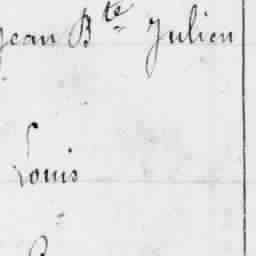 Jean Bte Julien
Louis
"